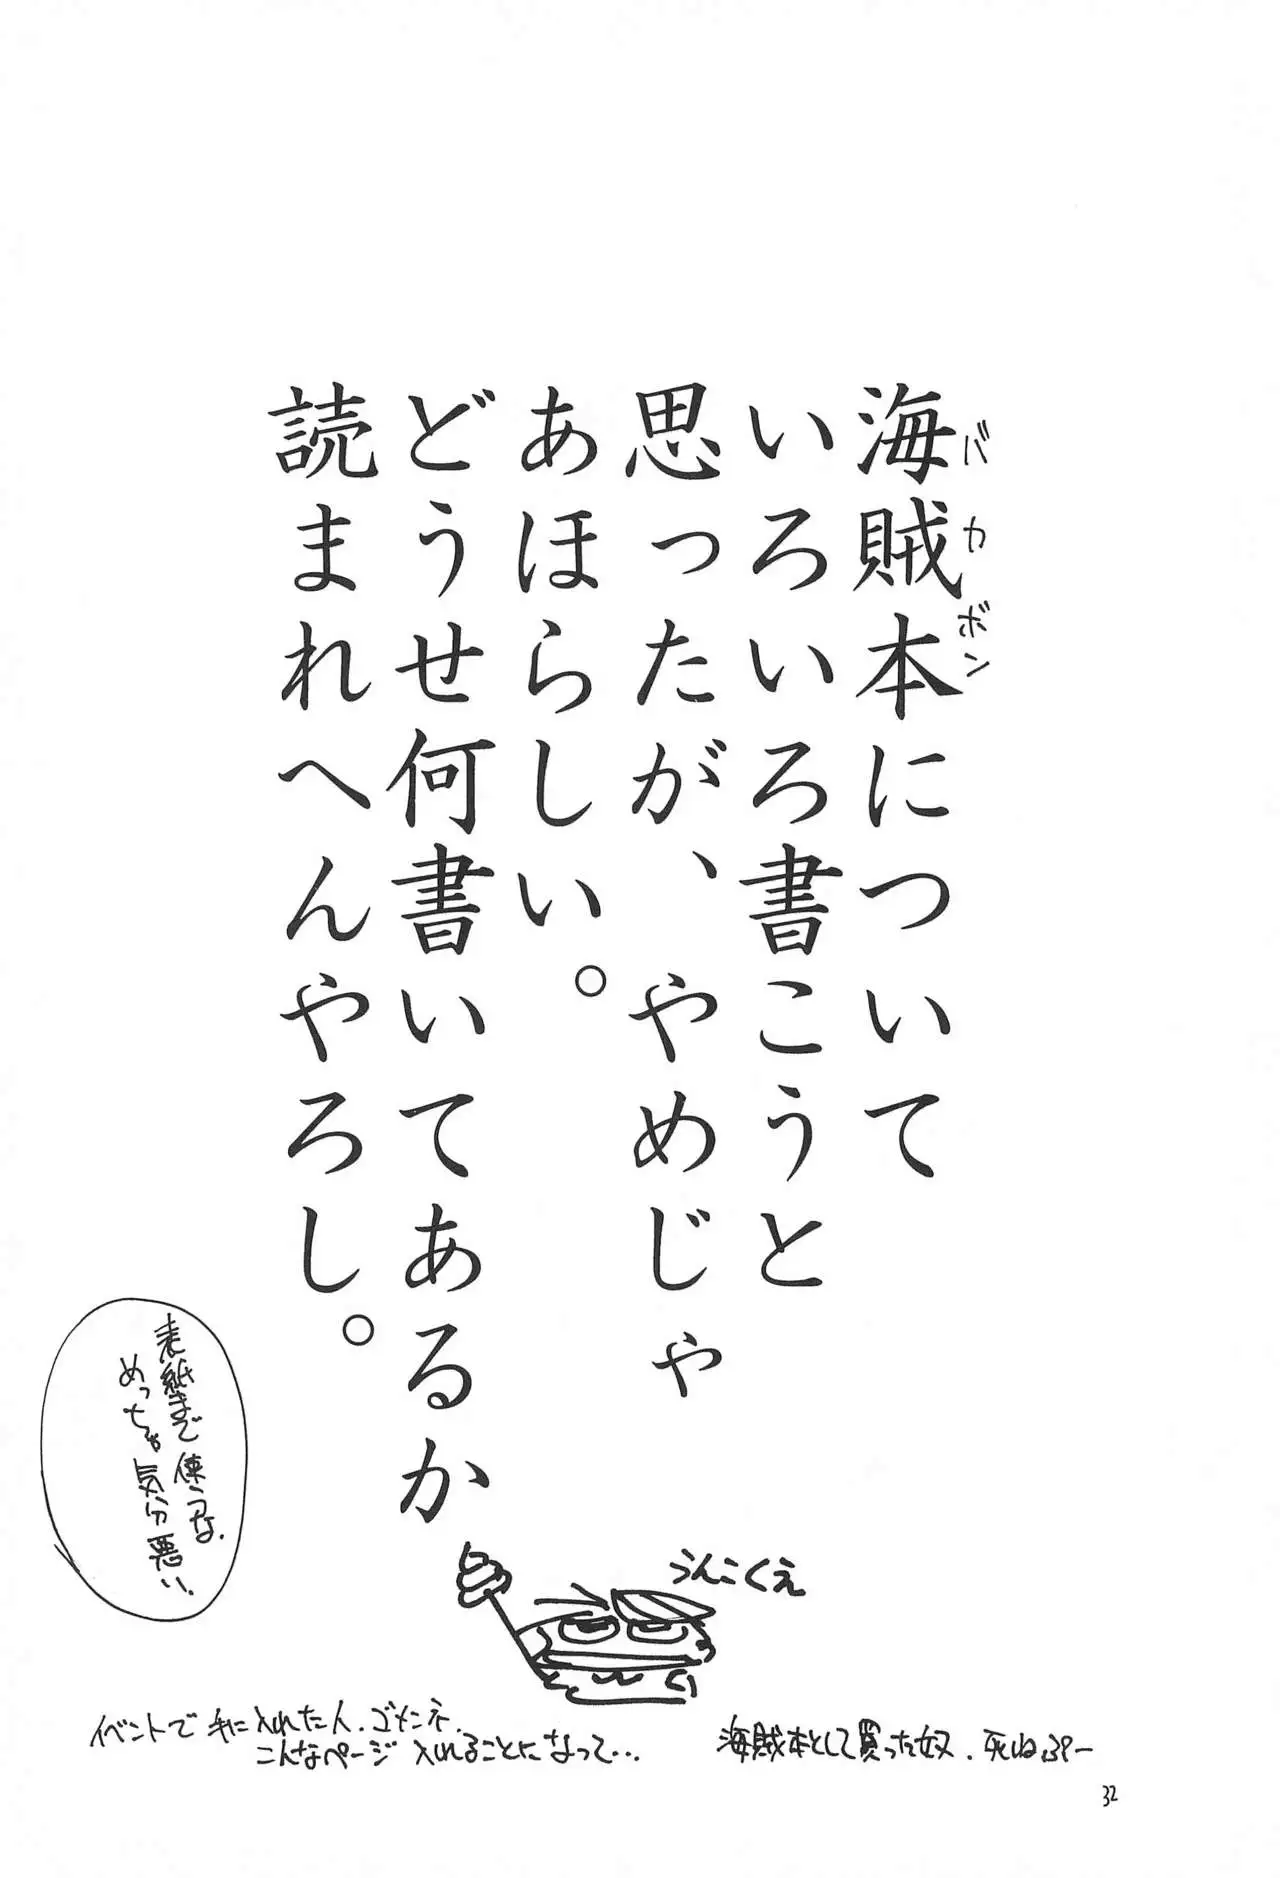 海賊本について
バカボン
いろいろ書こうと
思ったが、やめじゃ
あほらしい。
どうせ何書いてあるか
読まれへんやろし。
表紙まで使うな、
めっちゃ気分悪い。
うんこくえ
イベントで手に入れた人、ゴメンネ、
こんなページ入れることになって…
海賊本として買った奴、死ね
32